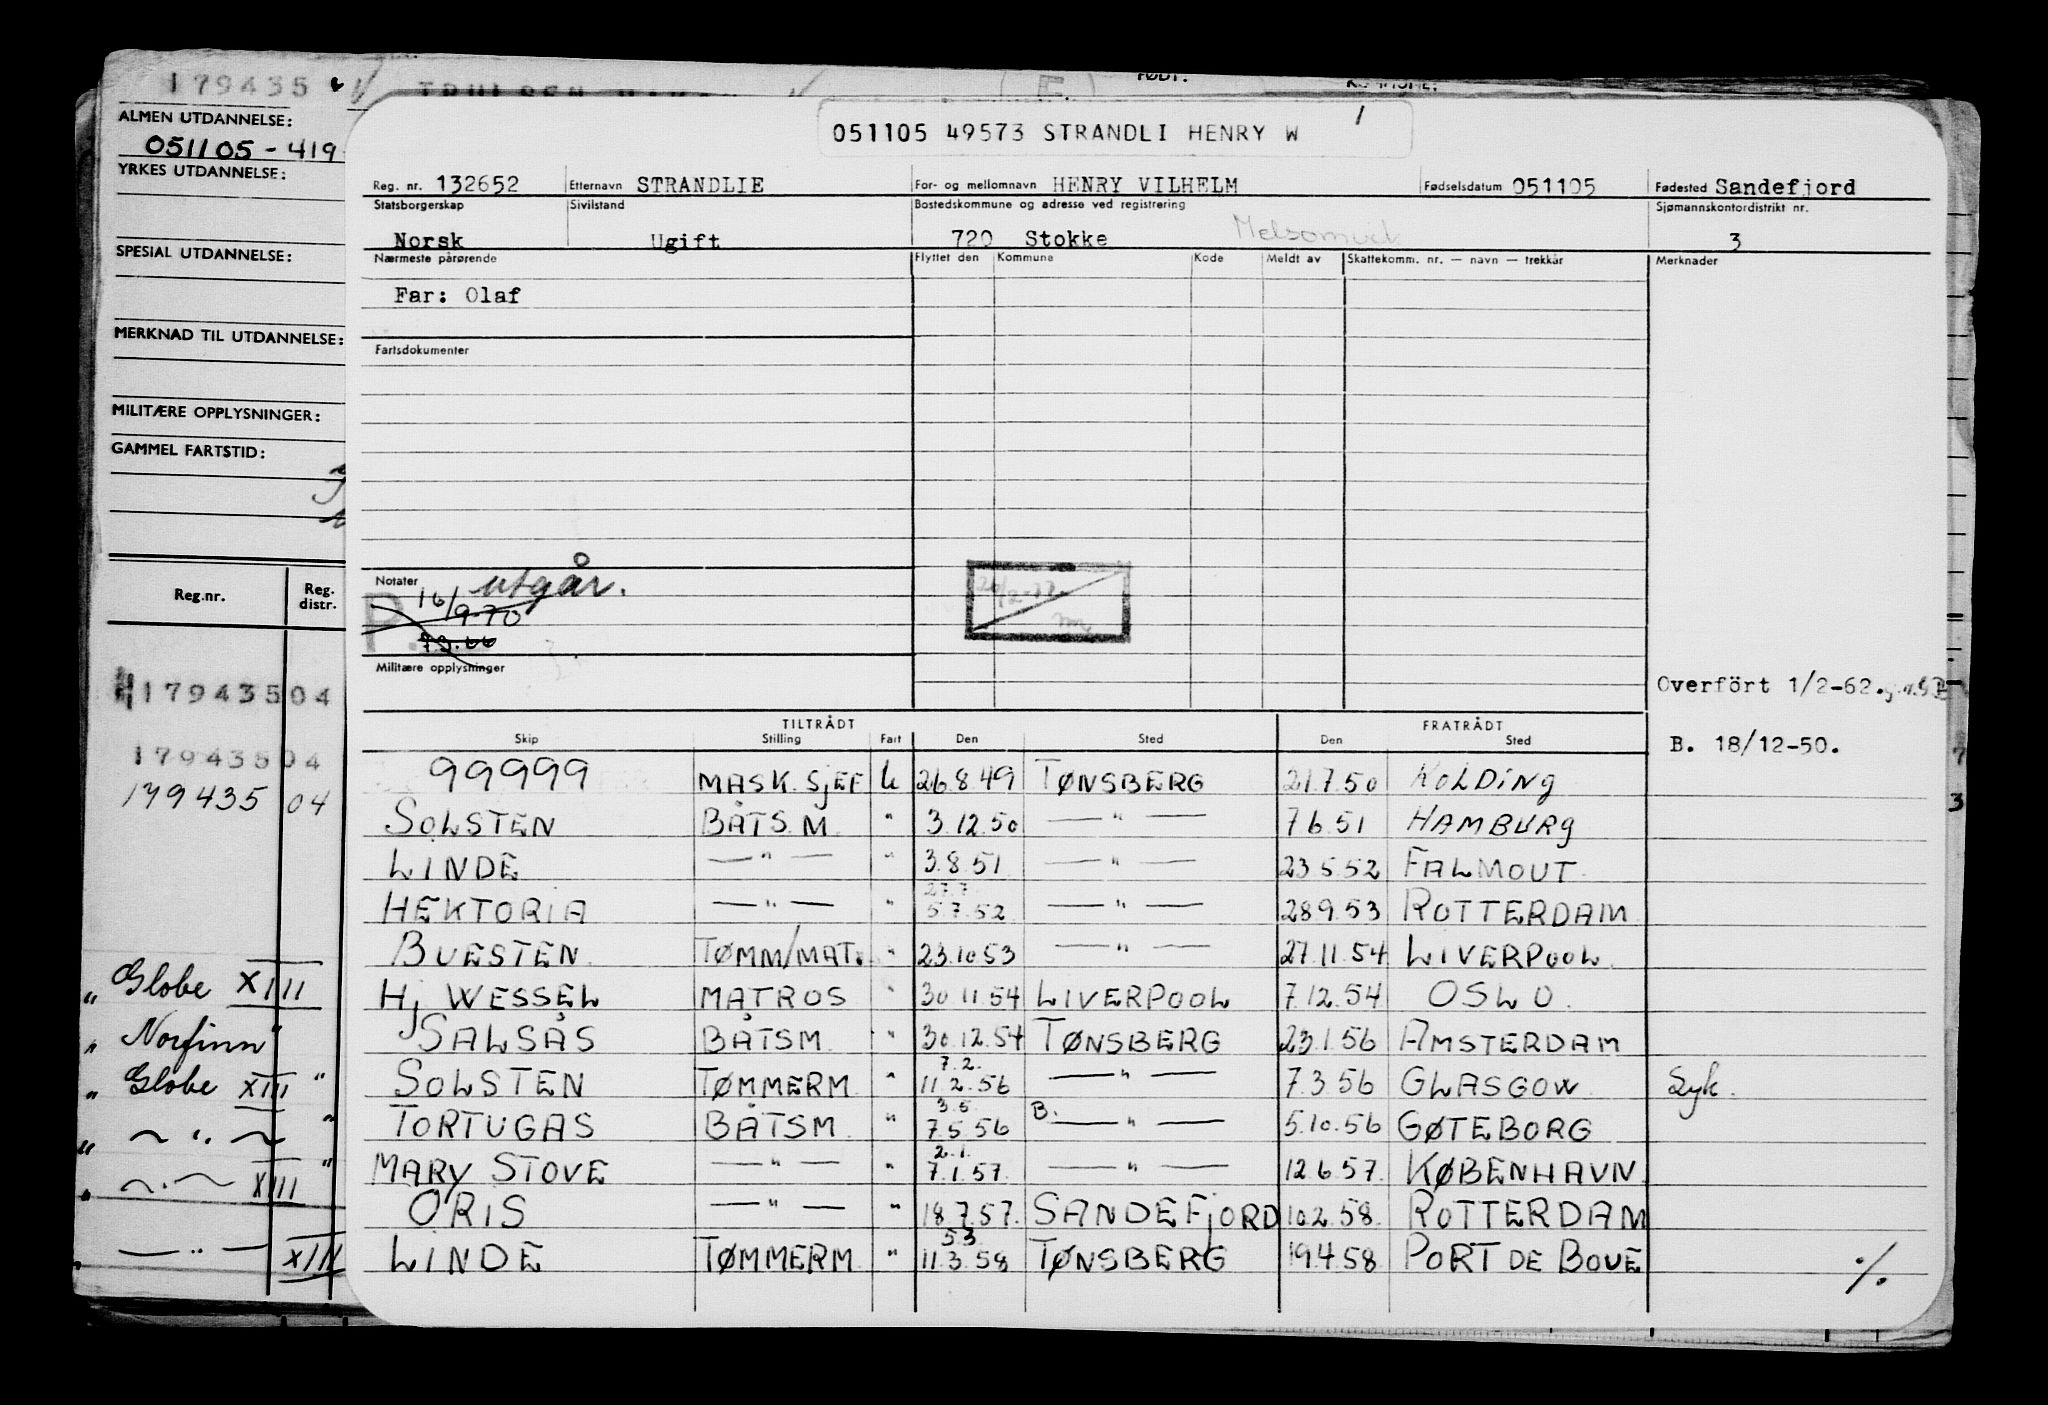 179435
FØDT:
ALMEN UTDANNELSE:
051105 - 419
YRKES UTDANNELSE:
SPESIAL UTDANNELSE:
MERKNAD TIL UTDANNELSE:
MILITÆRE OPPLYSNINGER:
GAMMEL FARTSTID:
Reg.nr. Reg. distr.
17943504
17943504
179435 04
" Globe XIII
" Norfinn "
" Globe XIII "
" ~ " ~ "
" ~ " ~ XIII "
— " — XIII
1
051105 49573 STRANDLI HENRY W
Reg. nr. 132652 Etternavn STRANDLIE For- og mellomnavn HENRY VILHELM Fødselsdatum 051105 Fødested Sandefjord
Statsborgerskap Sivilstand Bostedskommune og adresse ved registrering Sjømannskontordistrikt nr.
Norsk Ugift 720 Stokke Melsomvik 3
Nærmeste pårørende Flyttet den Kommune Kode Meldt av Skattekomm. nr. — navn — trekkår Merknader
Far: Olaf
Fartsdokumenter
Notater utgår.
16/9-70
Militære opplysninger
Overført 1/2-62.
B. 18/12-50.
TILTRÅDT FRATRÅDT
Skip Stilling Fart Den Sted Den Sted
99999 MASK.SJEF U 26.8.49 TØNSBERG 21.7.50 KOLDING
SOLSTEN BÅTSM " 3.12.50 — " — 7.6.51 HAMBURG
LINDE — " — " 3.8.51 — " — 23.5.52 FALMOUT
27.7.
HEKTORIA — " — " 5.7.52 — " — 28.9.53 ROTTERDAM
BUESTEN TØMM/MAT. " 23.10.53 — " — 27.11.54 LIVERPOOL
Hj WESSEL MATROS " 30.11.54 LIVERPOOL 7.12.54 OSLO
SALSÅS BÅTSM " 30.12.54 TØNSBERG 23.1.56 AMSTERDAM
7.2.
SOLSTEN TØMMERM " 11.2.56 — " — 7.3.56 GLASGOW Syk.
3.5.
TORTUGAS BÅTSM " 7.5.56 B. — " — 5.10.56 GØTEBORG
2.1.
MARY STOVE — " — " 7.1.57 — " — 12.6.57 KØBENHAVN
ORIS — " — " 18.7.57. SANDEFJORD 10.2.58. ROTTERDAM
5.3
LINDE TØMMERM " 11.3.58 TØNSBERG 19.4.58 PORT DE BOUE
./.